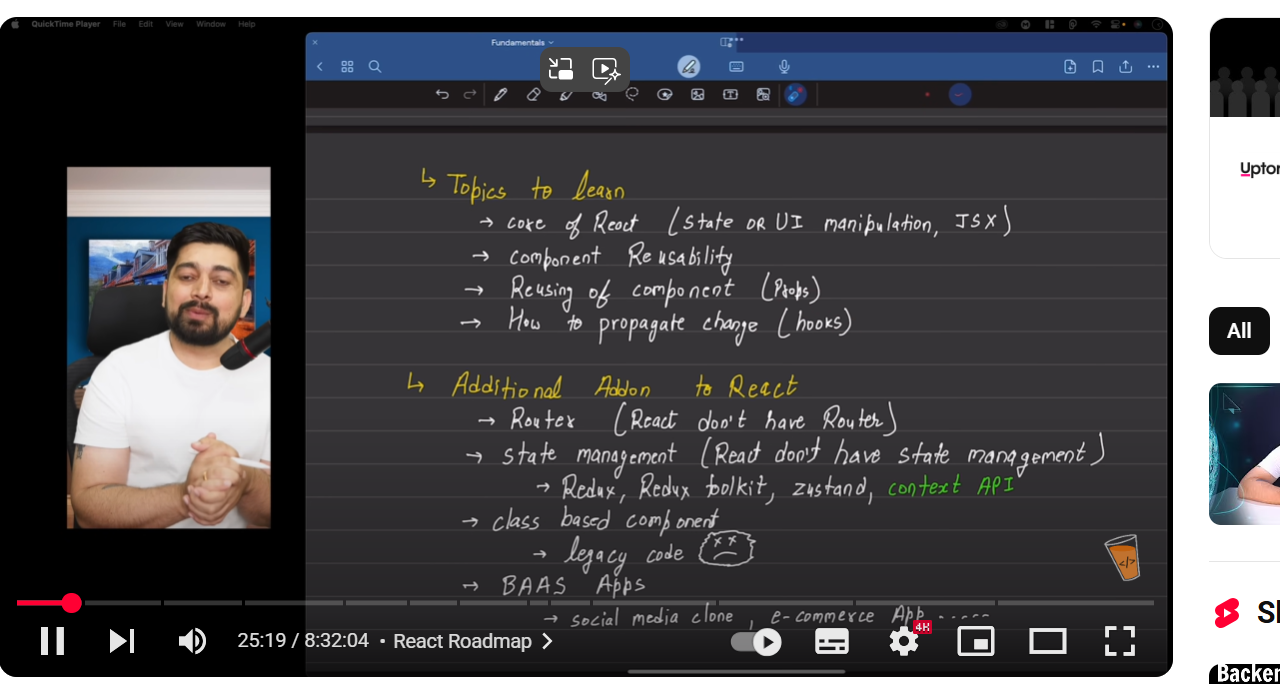 QuickTime Player File Edit View Window Help
Fundamentals
↳ Topics to learn
→ core of React (state OR UI manipulation, JSX)
→ component Reusability
→ Reusing of component (Props)
→ How to propagate change (hooks)
↳ Additional Addon to React
→ Router (React don't have Router)
→ state management (React don't have state management)
→ Redux, Redux toolkit, zustand, context API
→ class based component
→ legacy code
→ BAAS Apps
→ social media clone, e-commerce App -----
</>
25:19 / 8:32:04 • React Roadmap
4K
Uptor
All
Sh
Backen